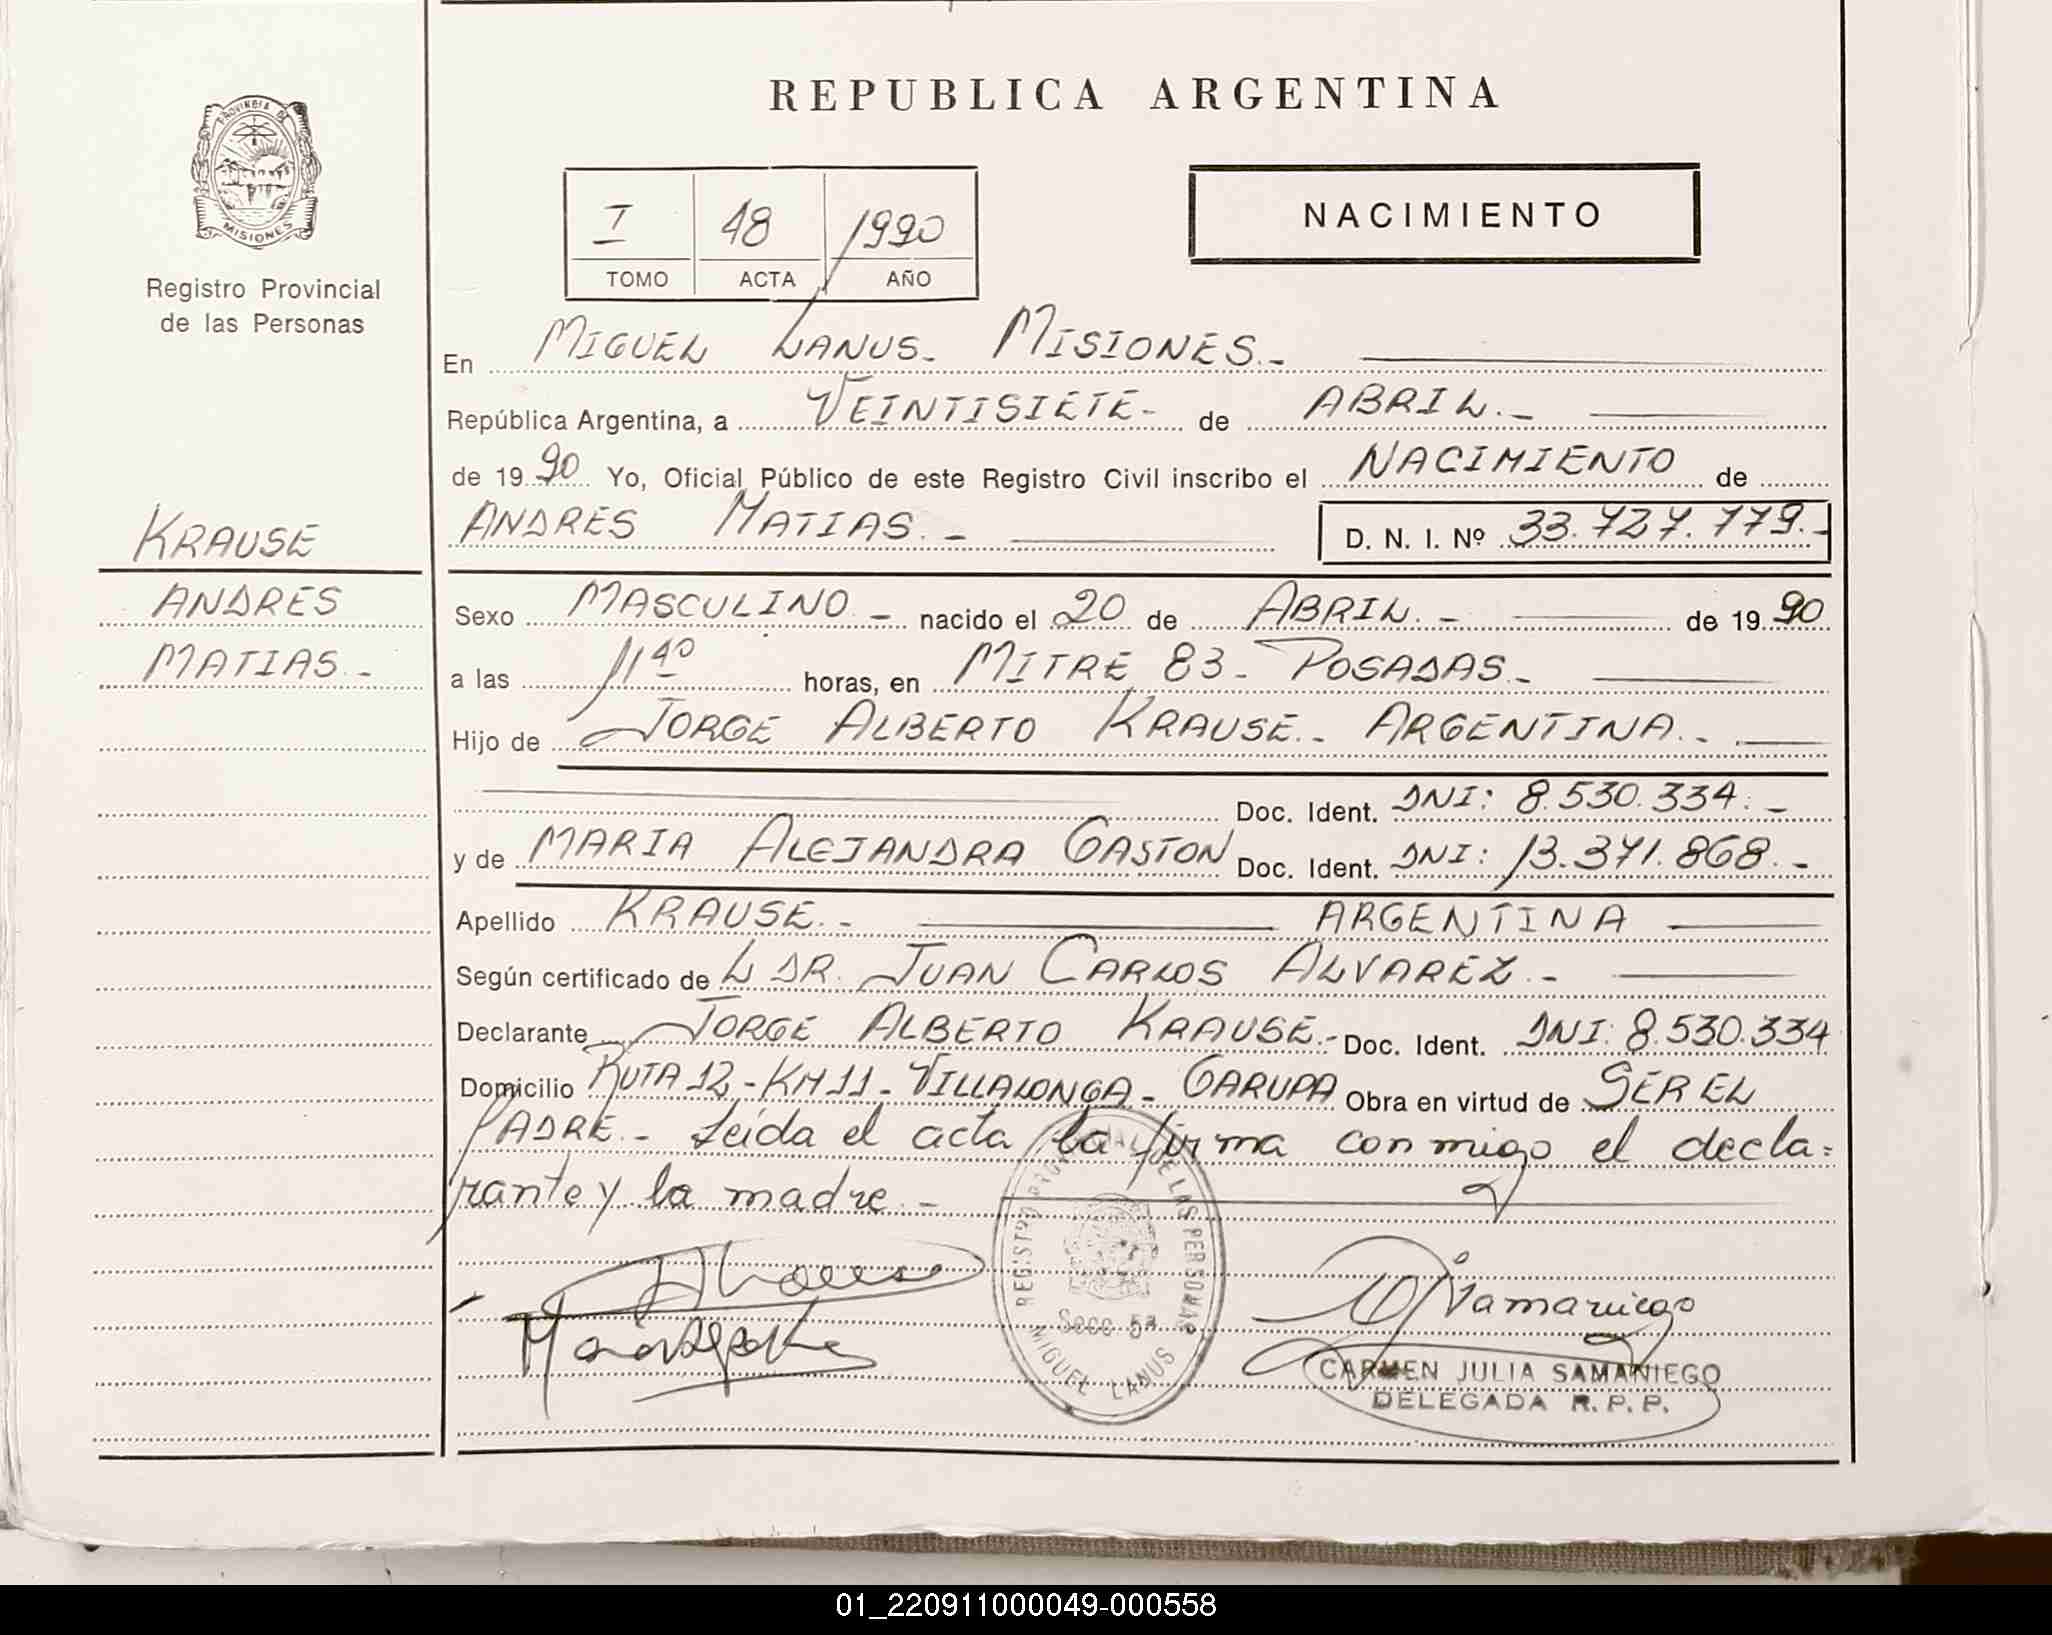 PROVINCIA DE
MISIONES
Registro Provincial
de las Personas
KRAUSE
ANDRES
MATIAS.-
REPUBLICA ARGENTINA
I 48 1990
TOMO ACTA AÑO
NACIMIENTO
En MIGUEL LANUS- MISIONES.-
República Argentina, a VEINTISIETE- de ABRIL.-
de 1990 Yo, Oficial Público de este Registro Civil inscribo el NACIMIENTO de
ANDRES MATIAS.- D. N. I. Nº 33.727.779.-
Sexo MASCULINO- nacido el 20 de ABRIL.- de 1990
a las 11 40 horas, en MITRE 83- POSADAS.-
Hijo de JORGE ALBERTO KRAUSE.- ARGENTINA.-
Doc. Ident. DNI: 8.530.334.-
y de MARIA ALEJANDRA GASTON Doc. Ident. DNI: 13.371.868.-
Apellido KRAUSE.- ARGENTINA
Según certificado de L DR. JUAN CARLOS ALVAREZ.-
Declarante JORGE ALBERTO KRAUSE.- Doc. Ident. DNI: 8.530.334
Domicilio RUTA 12-KM 11- VILLALONGA- GARUPA Obra en virtud de SER EL
PADRE.- Leída el acta la firma conmigo el decla=
rante y la madre.-
REGISTRO PROVINCIAL DE LAS PERSONAS
Secc 5ª
MIGUEL LANUS
Samaniego
CARMEN JULIA SAMANIEGO
DELEGADA R.P.P.
01_220911000049-000558